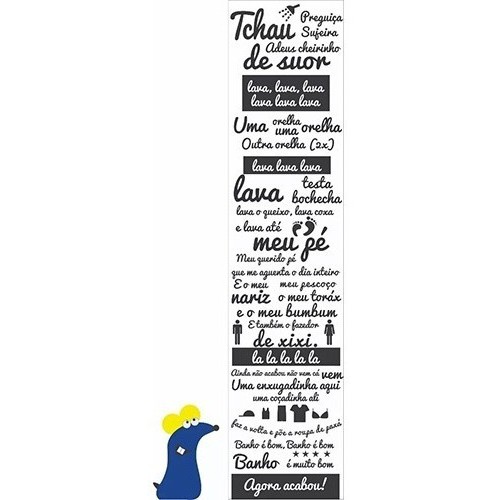 Tchau Preguiça
Sujeira
Adeus cheirinho
de suor
lava, lava, lava
lava lava lava
Uma orelha
uma orelha
Outra orelha (2x)
lava lava lava
lava testa
bochecha
lava o queixo, lava coxa
e lava até
meu pé
Meu querido pé
que me aguenta o dia inteiro
E o meu meu pescoço
nariz o meu toráx
e o meu bumbum
E também o fazedor
de xixi.
la la la la la
Ainda não acabou não vem cá vem
Uma enxugadinha aqui
uma coçadinha ali
faz a volta e põe a roupa de paxá
Banho é bom, Banho é bom
Banho é muito bom
Agora acabou!